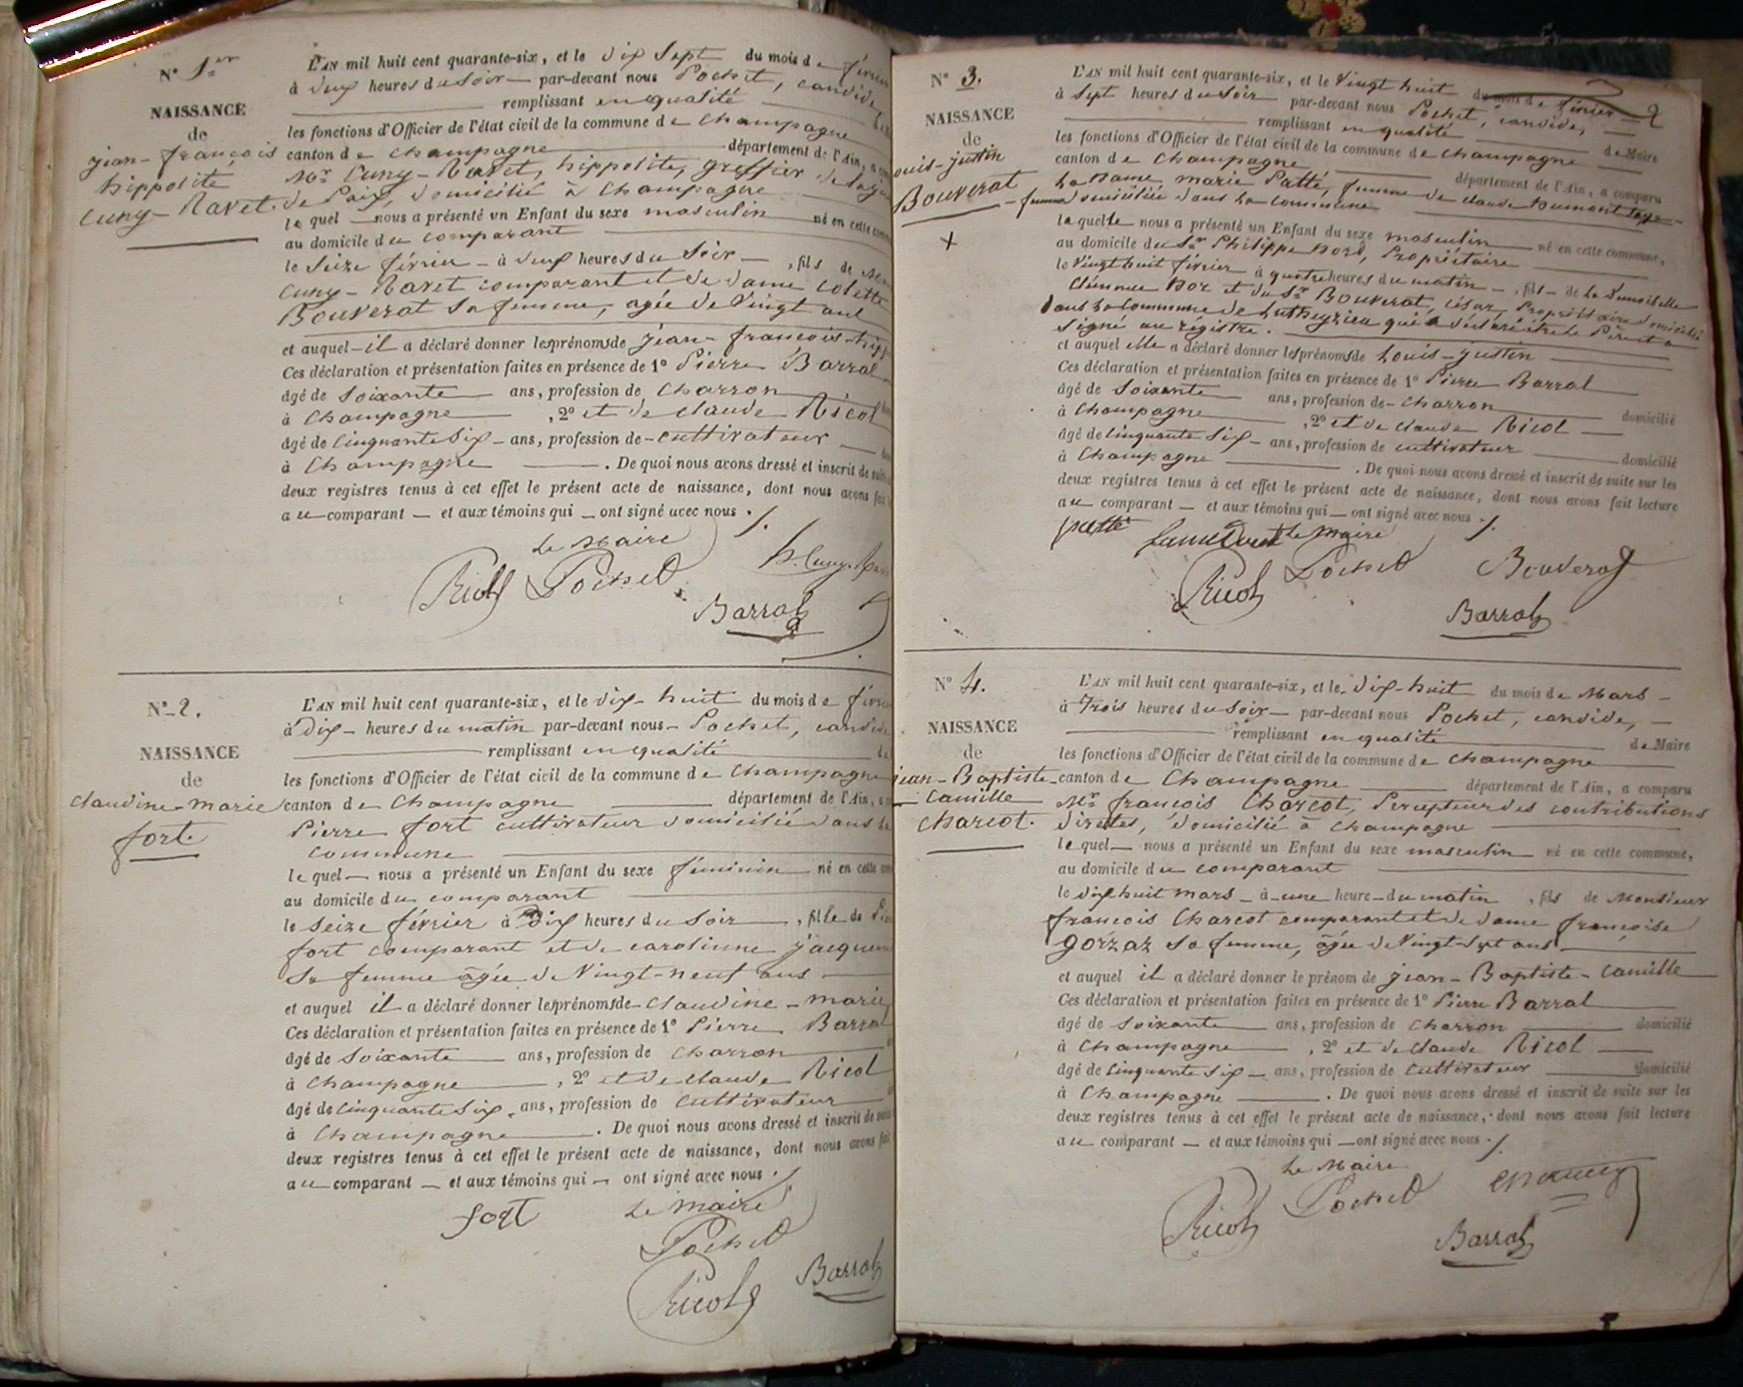 N° 1er
NAISSANCE
de
jean-françois
hippolite
Cuny-Ravet.
L'AN mil huit cent quarante-six, et le dix sept du mois de février
à deux heures du Soir par-devant nous Pochet, candide
remplissant en qualité
les fonctions d'Officier de l'état civil de la commune de Champagne
canton de Champagne département de l'Ain, a
Mr Cuny-Ravet, hippolite, greffier de la
de Paix, domicilié à Champagne
le quel nous a présenté un Enfant du sexe masculin né en cette
au domicile du comparant
le Seize février à deux heures du Soir, fils de
Cuny-Ravet comparant et de dame Colette
Bouverat sa femme, agée de Vingt ans
et auquel il a déclaré donner les prénoms de jean-françois-
Ces déclaration et présentation faites en présence de 1° Pierre Barral
âgé de Soixante ans, profession de Charron
à Champagne, 2° et de claude Ricol
âgé de Cinquante Six ans, profession de cultivateur
à Champagne. De quoi nous avons dressé et inscrit de suite
deux registres tenus à cet effet le présent acte de naissance, dont nous avons fait
au comparant et aux témoins qui ont signé avec nous ./.
Le Maire
Ricol Pochet h. Cuny
Barral
N° 2.
NAISSANCE
de
Claudine-marie
fort.
L'AN mil huit cent quarante-six, et le dix-huit du mois de
à Dix heures du matin par-devant nous Pochet, candide
remplissant en qualité de
les fonctions d'Officier de l'état civil de la commune de Champagne
canton de Champagne département de l'Ain, a
Pierre fort cultivateur domicilié dans la
commune
le quel nous a présenté un Enfant du sexe féminin né en cette
au domicile du comparant
le Seize février à Dix heures du Soir, fille de
fort comparant et de carolinne
Sa femme agée de Vingt-neuf ans
et auquel il a déclaré donner les prénoms de Claudine-marie
Ces déclaration et présentation faites en présence de 1° Pierre Barral
âgé de Soixante ans, profession de Charron
à Champagne, 2° et de claude Ricol
âgé de Cinquante Six ans, profession de Cultivateur
à Champagne. De quoi nous avons dressé et inscrit de suite
deux registres tenus à cet effet le présent acte de naissance, dont nous avons fait
au comparant et aux témoins qui ont signé avec nous ./.
fort Le Maire
Pochet
Ricol Barral
2
N° 3.
NAISSANCE
de
Louis-justin
Bouverat
L'AN mil huit cent quarante-six, et le Vingt huit du mois de février
à Sept heures du Soir par-devant nous Pochet, candide,
remplissant en qualité de Maire
les fonctions d'Officier de l'état civil de la commune de Champagne
canton de Champagne département de l'Ain, a comparu
La Dame marie Patté, femme de claude Dumont Sage-
femme domiciliée dans la commune
la quelle nous a présenté un Enfant du sexe masculin né en cette commune,
au domicile du Sr Philippe Dor, Propriétaire
le Vingt huit février à quatre heures du matin, fils de la Demoiselle
Clémence Dor et du Sr Bouverat, César, Propriétaire domicilié
dans la commune de Lutheyzieu qui a déclaré être le Père et a
Signé au régistre.
et auquel elle a déclaré donner les prénoms de Louis-justin
Ces déclaration et présentation faites en présence de 1° Pierre Barral
âgé de Soixante ans, profession de Charron domicilié
à Champagne, 2° et de claude Ricol
âgé de Cinquante Six ans, profession de cultivateur domicilié
à Champagne. De quoi nous avons dressé et inscrit de suite sur les
deux registres tenus à cet effet le présent acte de naissance, dont nous avons fait lecture
au comparant et aux témoins qui ont signé avec nous ./.
patté Le Maire
Ricol Pochet Bouverat
Barral
N° 4.
NAISSANCE
de
jean-Baptiste
Camille
Charcot.
L'AN mil huit cent quarante-six, et le dix-huit du mois de Mars
à Trois heures du Soir par-devant nous Pochet, candide,
remplissant en qualité de Maire
les fonctions d'Officier de l'état civil de la commune de Champagne
canton de Champagne département de l'Ain, a comparu
Mr françois Charcot, Percepteur des contributions
directes, domicilié à Champagne
le quel nous a présenté un Enfant du sexe masculin né en cette commune,
au domicile du comparant
le dix huit mars à une heure du matin, fils de Monsieur
françois Charcot comparant et de dame françoise
gorzaz Sa femme, âgée de Vingt-Sept ans
et auquel il a déclaré donner le prénom de jean-Baptiste-Camille
Ces déclaration et présentation faites en présence de 1° Pierre Barral
âgé de Soixante ans, profession de Charron domicilié
à Champagne, 2° et de claude Ricol
âgé de Cinquante Six ans, profession de Cultivateur domicilié
à Champagne. De quoi nous avons dressé et inscrit de suite sur les
deux registres tenus à cet effet le présent acte de naissance, dont nous avons fait lecture
au comparant et aux témoins qui ont signé avec nous ./.
Le Maire
Ricol Pochet
Barral